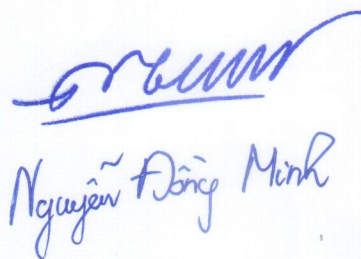 Nguyễn Đồng Minh